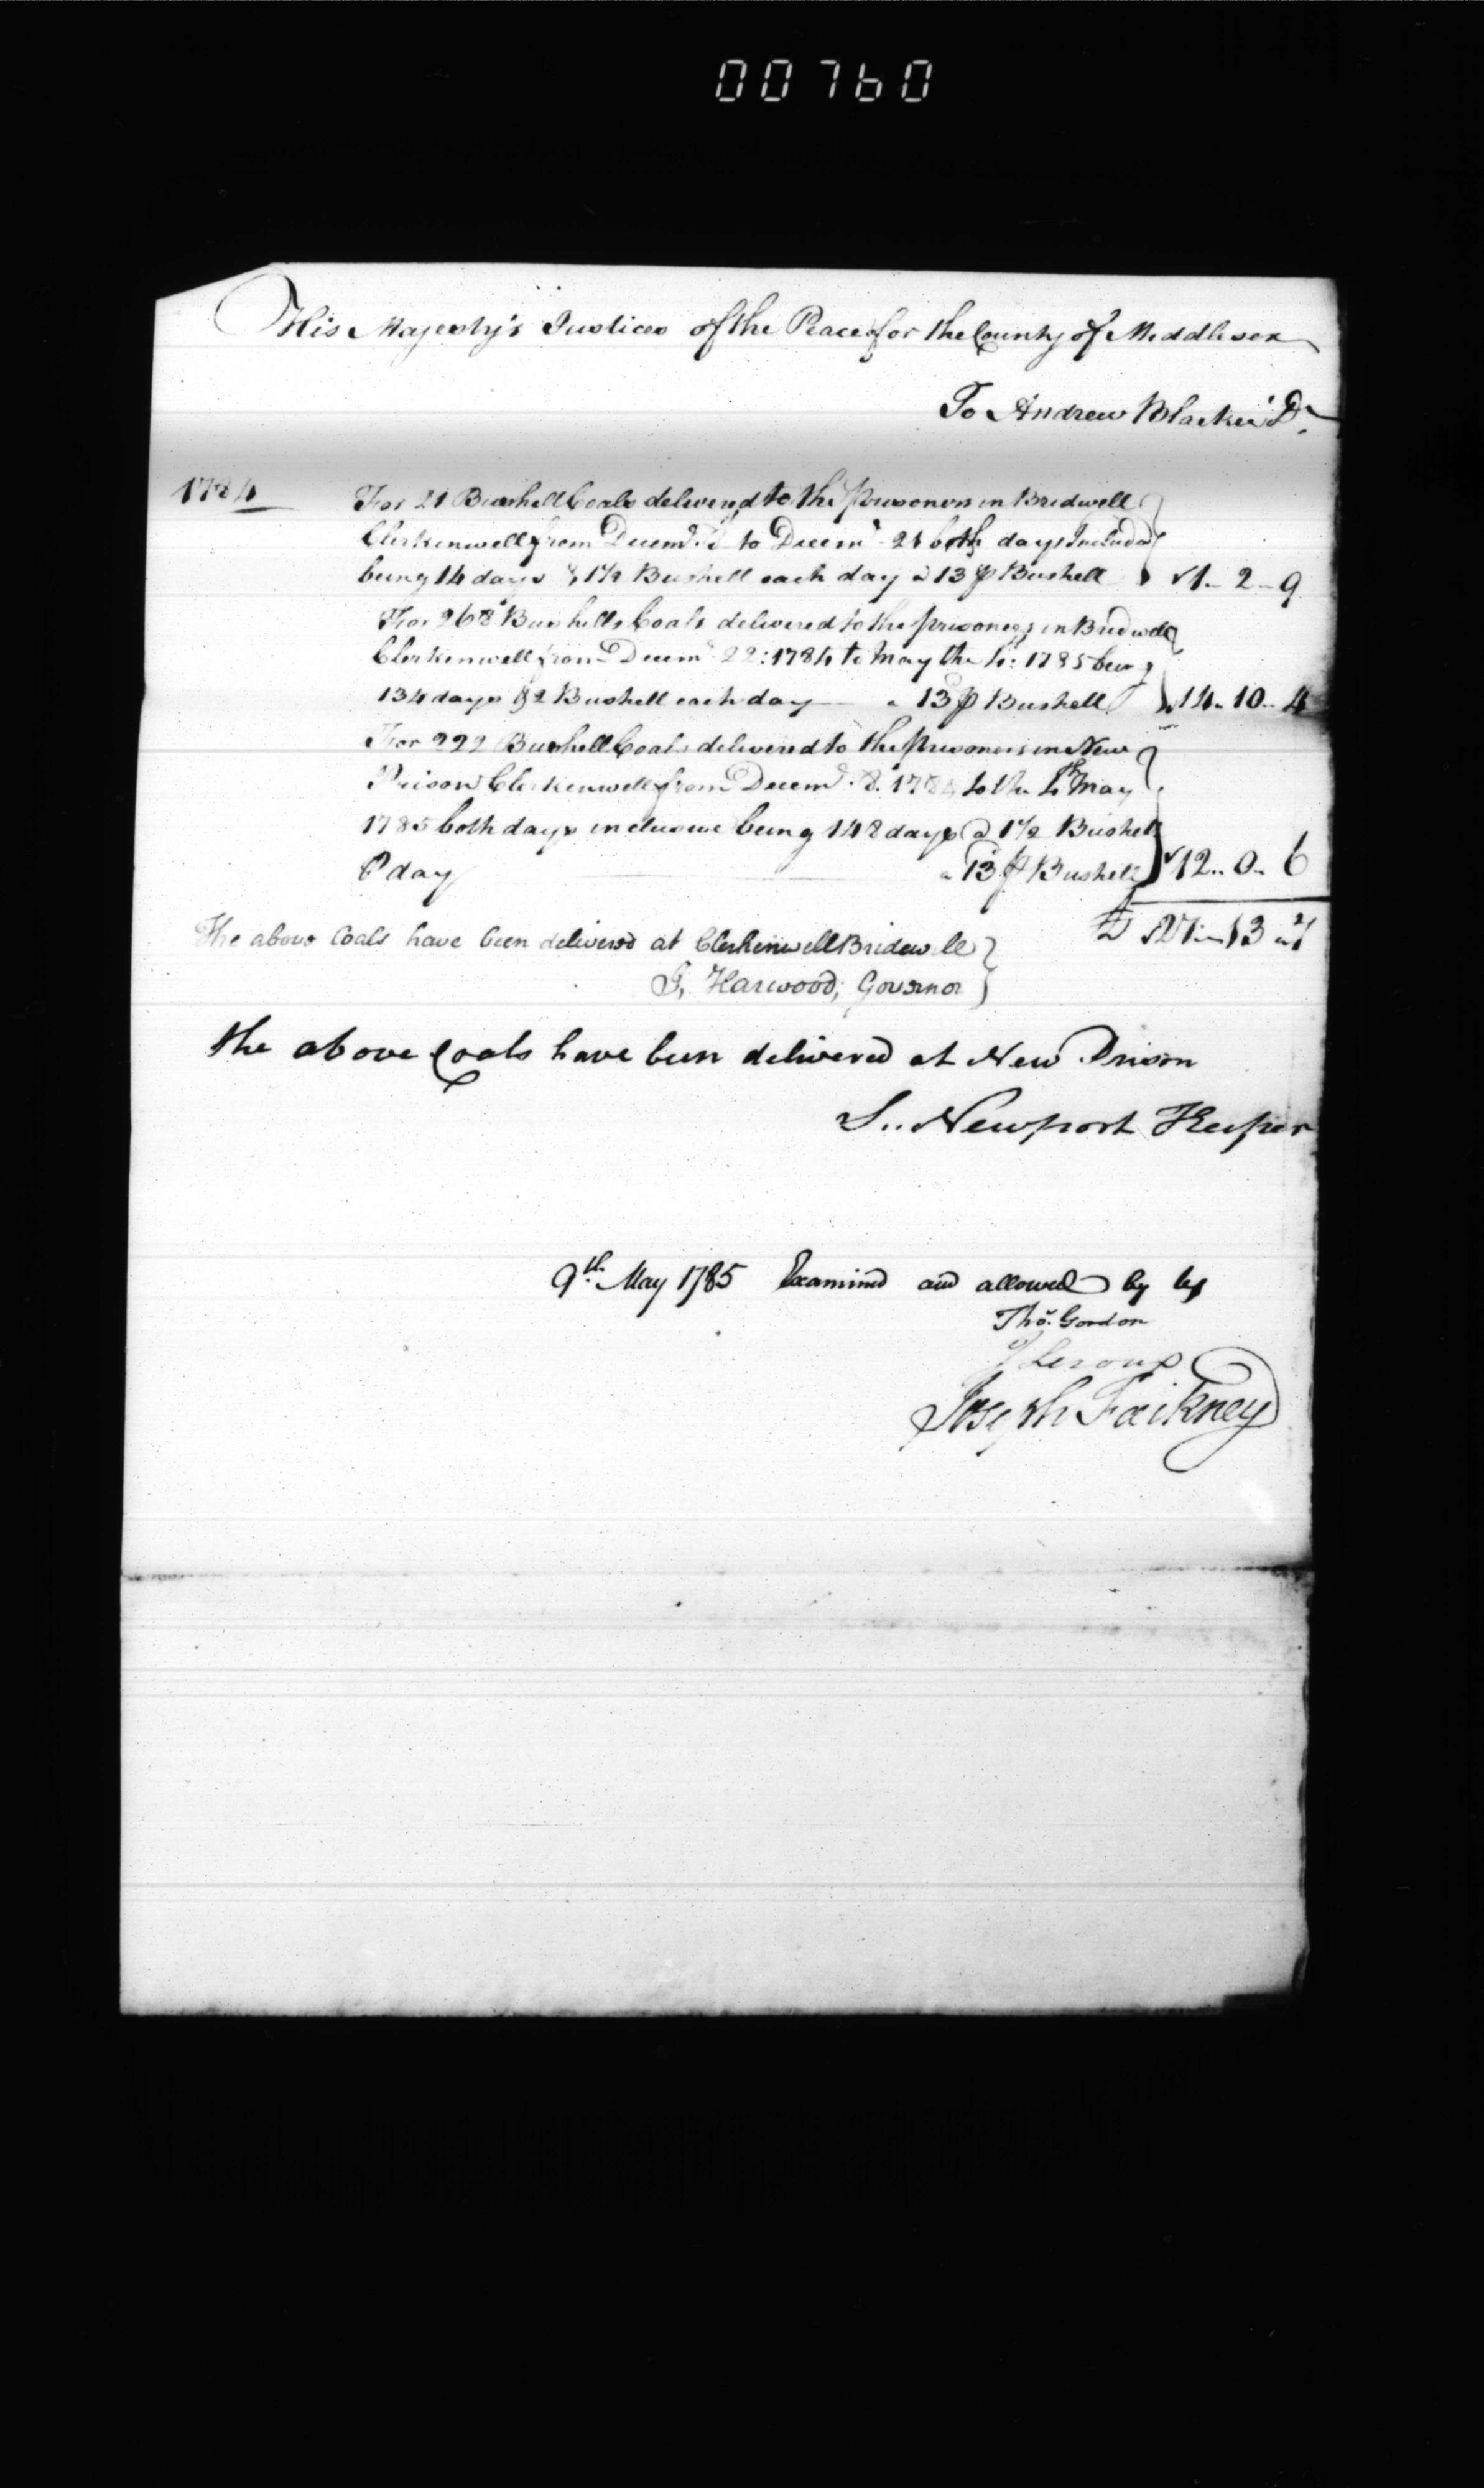 00760
His Majesty's Justices of the Peace for the County of Middlesex
To Andrew Blackie Dr.
1784
For 21 Bushell Coals deliverd to the prisoners in Bridwell
Clerkinwell from Decemr. 8 to Decemr. 21 both days Included
being 14 days @ 1 1/2 Bushell each day a 13 p Bushell 1 - 2 - 9
For 268 Bushells Coals delivered to the prisoners in Bridwell
Clerkenwell from Decemr 22: 1784 to May the 4: 1785 being
134 days @ 2 Bushell each day a 13 p Bushell 14 .. 10 .. 4
For 222 Bushell Coals delivered to the prisoners in New
Prison Clerkenwell from Decemr. 8: 1784 to the 4th May
1785 both days inclusive being 148 days @ 1 1/2 Bushell
P day a 13 p Bushell 12 .. 0 .. 6
£ 27 .. 13 .. 7
The above Coals have been deliverd at Clerkenwell Bridewell
J. Harwood, Governor
the above Coals have been delivered at New Prison
S.. Newport Keeper
9th. May 1785 Examined and allowed by us
Thos. Gordon
J Leroux
Joseph Faikney